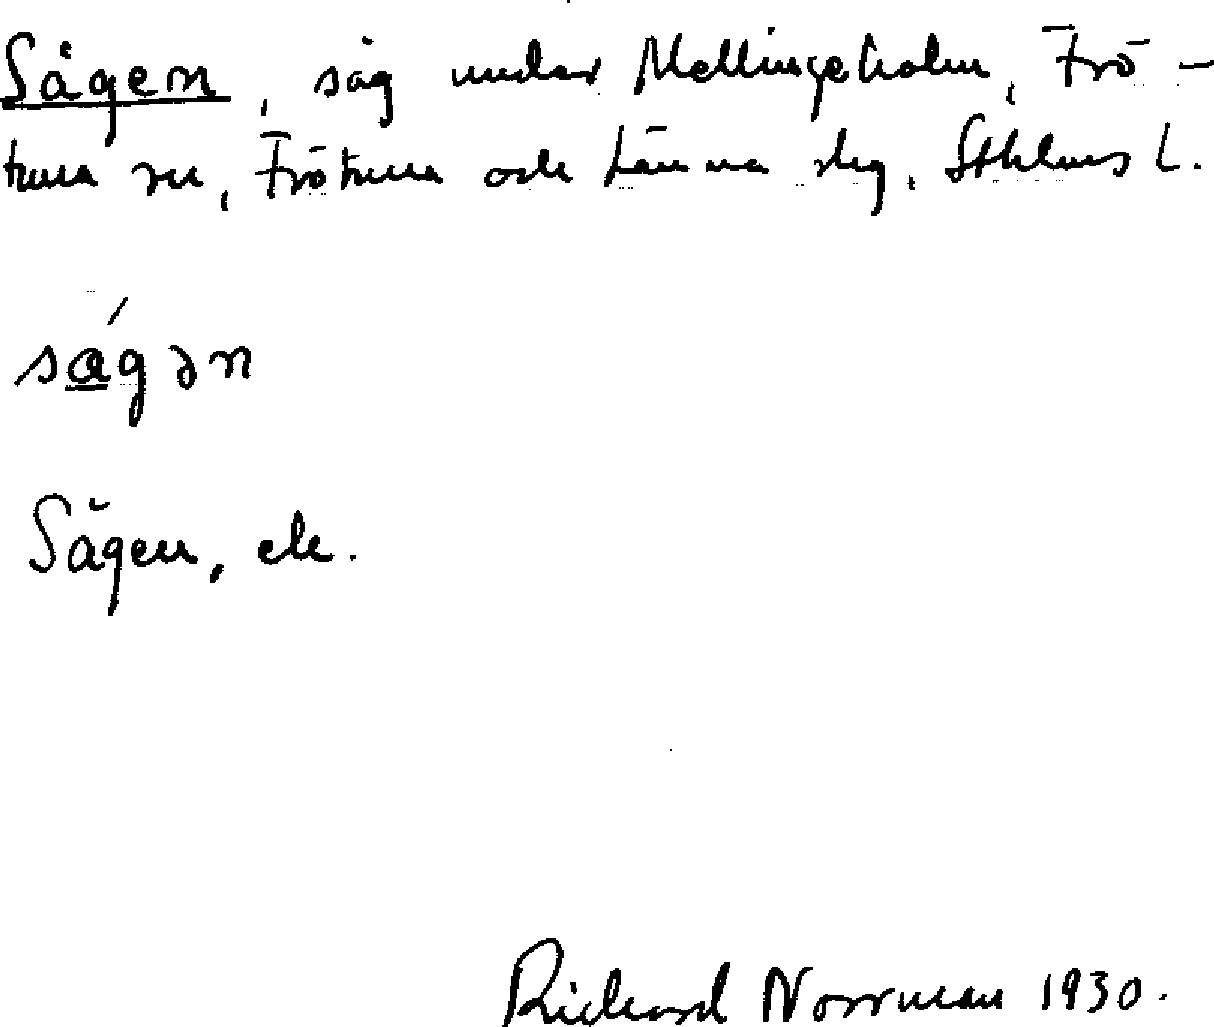 Sågen, såg under Mellingeholm, Frö-
tuna sn, Frötuna och Länna skg, Sthlms l.
ságən
Sågen, ek.
Richard Norrman 1930.